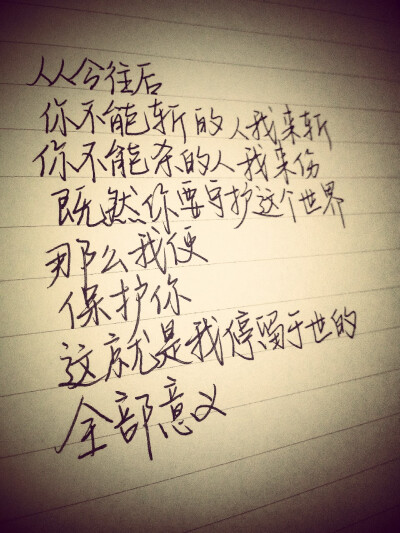 从今往后
你不能斩的人我来斩
你不能杀的人我来伤
既然你要守护这个世界
那么我便
保护你
这就是我停留于世的
全部意义